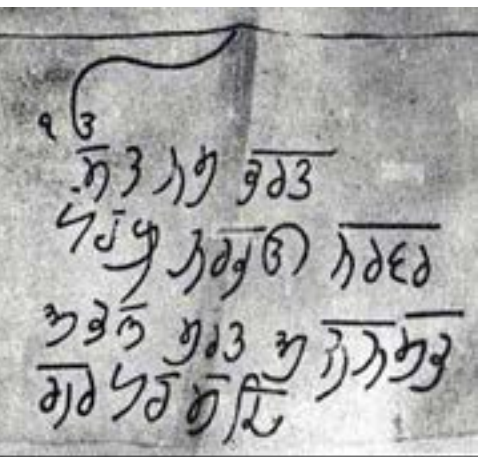 ੴ
ਸਤ ਨਮ ਕਰਤ
ਪਰਖ ਨਰਭਉ ਨਰਵਰ
ਅਕਲ ਮਰਤ ਅ ਜਨ ਸਭ
ਗਰ ਪਰਸਦ